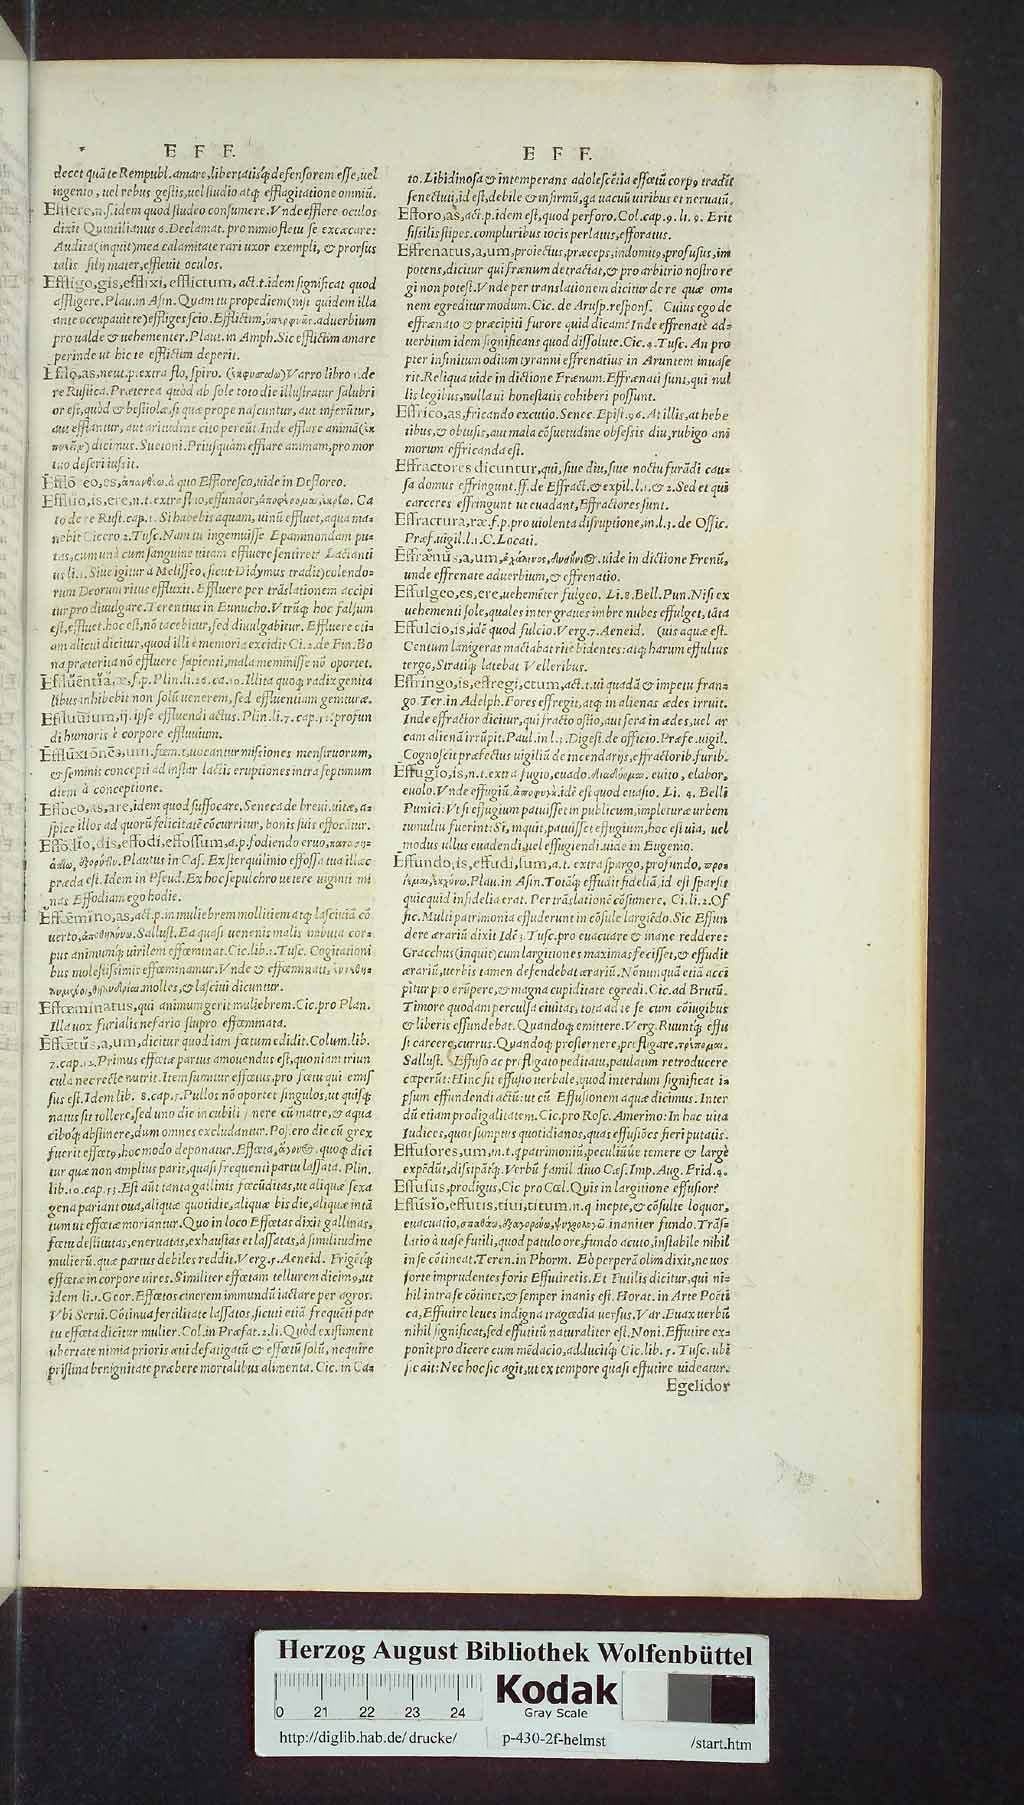 E F F.
decet quã te Rempubl. amare, libertatisq́; defensorem esse, uel
ingenio, uel rebus gestis, uel studio atq; efflagitatione omniũ.
Efflere, n. s. idem quod fleudo consumere. Vnde efflere oculos
dixit Quintilianus 6. Declamat. pro nimio fletu se excæcare:
Audita (inquit) mea calamitate rari uxor exempli, & prorsus
talis filij mater, effleuit oculos.
Effligo, gis, efflixi, efflictum, act. t. idem significat quod
affligere. Plau. in Asin. Quam tu propediem (nisi quidem illa
ante occupauit te) effliges scio. Efflictim, aduerbium
pro ualde & uehementer. Plaut. in Amph. Sic efflictim amare
perinde ut hic te efflictim deperit.
Efflo, as, neut. p. extra flo, spiro. Varro libro 1. de
re Rustica. Præterea quòd ab sole toto die illustratur salubri
or est, quòd & bestiolæ, si quæ prope nascuntur, aut inferũtur,
aut efflantur, aut aritudine cito pereũt. Inde efflare animã
dicimus. Sueton. Priusquàm efflare animam, pro mor
tuo deseri iussit.
eo, es, à quo Effloresco, uide in Defloreco.
Effluo, is, ere, n. t. extra fluo, effundor, Ca
to de re Rust. cap. 1. Si habebis aquam, uinũ effluet, aqua ma-
nebit Cicero 2. Tusc. Nam tu ingemuisse Epaminondam pu-
tas, cum unà cum sanguine uitam effluere sentiret? Lactanti
us li. 1. Siue igitur à Melisseo, sicut Didymus tradit) colendo-
rum Deorum ritus effluxit. Effluere per trãslationem accipi
tur pro diuulgare. Terentius in Eunucho. Vtrũq; hoc falsum
est, effluet. hoc est, nõ tacebitur, sed diuulgabitur. Effluere eti-
am alicui dicitur, quod illi è memoria excidit Ci. 2. de Fin. Bo
na præterita nõ effluere sapienti, mala meminisse nõ oportet.
Effluentia, æ, f. p. Plin. li. 26. ca. 10. Illita quoq; radix genita
libus inhibebit non solũ uenerem, sed effluentiam genituræ.
Effluuium, ij. ipse effluendi actus. Plin. li. 7. cap. profun
di humoris è corpore effluuium.
Effluxiones, um. fœm. t. uocantur missiones menstruorum,
& seminis concepti ad instar lactis eruptiones intra septimum
diem à conceptione.
Effoco, as, are, idem quod suffocare. Seneca de breui. uitæ, a-
spice illos ad quorũ felicitatẽ cõcurritur, bonis suis effocãtur.
Effodio, dis, effodi, effossum, a. p. fodiendo eruo,
Plautus in Cas. Ex sterquilinio effossa tua illæc
præda est. Idem in Pseud. Ex hoc sepulchro uetere uiginti mi
nas Effodiam ego hodie.
Effœmino, as, act. p. in muliebrem mollitiem atq; lasciuiã cõ
uerto, Sallust. Ea quasi uenenis malis imbuta cor-
pus animumq́; uirilem effœminat. Cic. lib. 1. Tusc. Cogitationi
bus molestissimis effœminamur. Vnde & effœminati,
molles, & lasciui dicuntur.
Effœminatus, qui animum gerit muliebrem. Cic. pro Plan.
Illa uox furialis nefario stupro effœminata.
Effœtus, a, um, dicitur quod iam fœtum edidit. Colum. lib.
7. cap. 12. Primus effœtæ partus amouendus est, quoniam triun
cula nec recte nutrit. Item sumitur effœtus, pro fœtu qui emis
sus est. Idem lib. 8. cap. 5. Pullos nõ oportet singulos, ut quisq;
natus sit tollere, sed uno die in cubili sinere cũ matre, & aqua
ciboq; abstinere, dum omnes excludantur. Postero die cũ grex
fuerit effœtꝰ, hoc modo deponatur. Effœta, quoq; dici
tur quæ non amplius parit, quasi frequenti partu lassata. Plin.
lib. 10. cap. 53. Est aũt tanta gallinis fœcũditas, ut aliquæ sexa
gena pariant oua, aliquæ quotidie, aliquæ bis die, aliquæ intã
tum ut effœtæ moriantur. Quo in loco Effœtas dixit gallinas,
fœtu destitutas, eneruatas, exhaustas et lassatas, à similitudine
mulierũ. quæ partus debiles reddit. Verg. 5. Aeneid. Frigẽtq́;
effœtæ in corpore uires. Similiter effœtam tellurem dicimꝰ, ut
idem li. 1. Geor. Effœtos cinerem immundũ iactare per agros.
Vbi Serui. Cõtinua fertilitate lassatos, sicuti etiã frequẽti par
tu effœta dicitur mulier. Col. in Præfat. 2. li. Quòd existiment
ubertate nimia prioris æui defatigatũ & effœtũ solũ, nequire
pristina benignitate præbere mortalibus alimenta. Cic. in Ca-
E F F.
to. Libidinosa & intemperans adolescẽtia effœtũ corpꝰ tradit
senectuti, id est, debile & infirmũ, qa uacuũ uiribus et neruatũ.
Efforo, as, act. p. idem est, quod perforo. Col. cap. 9. li. 9. Erit
fissilis stipes. compluribus iocis perlatus, efforatus.
Effrenatus, a, um, proiectus, præceps, indomitꝰ, profusus, im
potens, dicitur qui frænum detractat, & pro arbitrio nostro re
gi non potest. Vnde per translationem dicitur de re quæ om-
nem egreditur modum. Cic. de Arusp. respons. Cuius ego de
effrænato & præcipiti furore quid dicam? Inde effrenatè ad-
uerbium idem significans quod dissolute. Cic. 4. Tusc. An pro
pter infinitum odium tyranni effrenatius in Aruntem inuase
rit. Reliqua uide in dictione Frænum. Effrænati sunt, qui nul
lis legibus, nulla ui honestatis cohiberi possunt.
Effrico, as, fricando excutio. Senec. Epist. 96. At illis, at hebe
tibus, & obtusis, aut mala cõsuetudine obsessis diu, rubigo ani
morum effricanda est.
Effractores dicuntur, qui, siue diu, siue noctu furãdi cau-
sa domus effringunt. ff. de Effract. & expil. l. 1. & 2. Sed et qui
carceres effringunt ut euadant, Effractores sunt.
Effractura, ræ. f. p. pro uiolenta disruptione, in. l. 3. de Offic.
Præf. uigil. l. 1. C. Locati.
Effrænus, a, um, uide in dictione Frenũ,
unde effrenate aduerbium, & effrenatio.
Effulgeo, es, ere, uehemẽter fulgeo. Li. 8. Bell. Pun. Nisi ex
uehementi sole, quales inter graues imbre nubes effulget, tãta
Effulcio, is, idẽ quod fulcio. Verg. 7. Aeneid. (uis aquæ est.
Centum lanigeras mactabat rite bidentes: atq; harum effultus
tergo, Stratisq; iatebat Velleribus.
Effringo, is, effregi, ctum, act. t. ui quadã & impetu fran-
go. Ter. in Adelph. Fores effregit, atq; in alienas ædes irruit.
Inde effractor dicitur, qui fracto ostio, aut sera in ædes, uel ar
cam alienã irrũpit. Paul. in l. 3. Digest. de officio. Præfe. uigil.
Cognoscit præfectus uigiliũ de incendarijs, effractorib. furib.
Effugio, is, n. t. extra fugio, euado. euito, elabor,
euolo. Vnde effugiũ, idẽ est quod euasio. Li. 4. Belli
Punici: Vt si effugium patuisset in publicum, impleturæ urbem
tumultu fuerint: Si, inquit, patuisset effugium, hoc est uia, uel
modus ullus euadendi, uel effugiendi. uide in Eugenio.
Effundo, is, effudi, sum, a. t. extra spargo, profundo,
Plau. in Asin. Totãq; effudit fideliã, id est sparsit
quicquid in fidelia erat. Per trãslationẽ cõsumere. Ci. li. 2. Of
fic. Multi patrimonia effuderunt in cõsule largiẽdo. Sic Effun
dere ærariũ dixit Idẽ 3. Tusc. pro euacuare & inane reddere:
Gracchus (inquit) cum largitiones maximas fecisset, & effudit
ærariũ, uerbis tamen defendebat ærariũ. Nõnunquã etiã acci
pitur pro erũpere, & magna cupiditate egredi. Cic. ad Brutũ.
Timore quodam perculsa ciuitas, tota ad te se cum cõiugibus
& liberis effundebat. Quandoq; emittere. Verg. Ruuntq; effu
si carcere currus. Quandoq; prosternere, profligare,
Sallust. Effuso ac profligato peditatu, paulatim retroducere
cœperũt: Hinc fit effusio uerbale, quod interdum significat i-
psum effundendi actũ: ut cũ Effusionem aquæ dicimus. Inter
dũ etiam prodigalitatem. Cic. pro Rosc. Amerino: In hac uita
Iudices, quos sumptus quotidianos, quas effusiões fieri putatis.
Effusores, um, m. t. q patrimoniũ, peculiũue temere & largè
expẽdũt, dissipãtq́;. Verbũ famil. diuo Cæs. Imp. Aug. Frid. 4.
Effusus, prodigus, Cic pro Cœl. Quis in largitione effusior?
Effutio, effutis, tiui, titum. n. q inepte, & cõsulte loquor,
euacuatio, inaniter fundo. Trãs-
latio à uase futili, quod patulo ore, fundo acuto, instabile nihil
in se cõtineat. Teren. in Phorm. Eò perperã olim dixit, ne uos
forte imprudentes foris Effutiretis. Et Futilis dicitur, qui ni-
hil intra se cõtinet, & semper inanis est. Horat. in Arte Poëti
ca, Effutire leues indigna tragœdia uersus. Var. Euax uerbũ
nihil significat, sed effutitũ naturaliter est. Noni. Effutire ex-
ponit pro dicere cum mẽdacio, adducitq́; Cic. lib. 5. Tusc. ubi
sic ait: Nec hoc sic agit, ut ex tempore quasi effutire uideatur.
Egelidor
Herzog August Bibliothek Wolfenbüttel
Kodak
Gray Scale
0 21 22 23 24
http://diglib.hab.de/drucke/ p-430-2f-helmst /start.htm